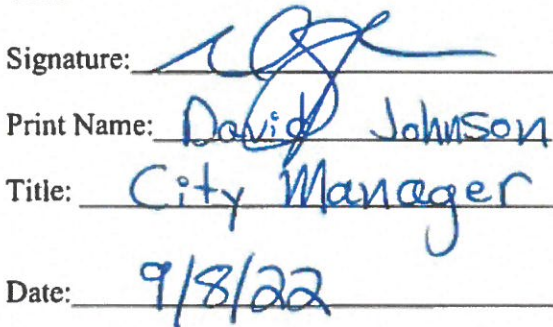 Signature:
Print Name: David Johnson
Title: City Manager
Date: 9/8/22